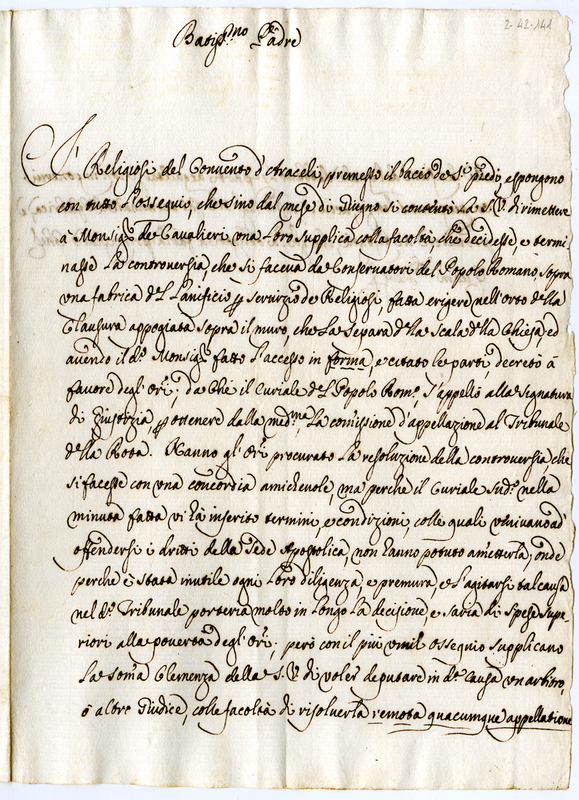 2-42-141
Batiss.mo Padre
I Religiosi del Convento d'Araceli, premesso il bacio de S.ti piedi espongono
con tutto l'ossequio, che sino dal mese di Giugno si contentò La S. V. di rimettere
à Monsig.r de Cavalieri una loro supplica colla facoltà che decidesse, e termi
nasse La controversia, che si faceva da Conservatori del Popolo Romano, sopra
una fabrica del Lanificio p servizio de Religiosi, fatta erigere nell'orto della
Clausura appogiata sopra il muro, che La separa della Scala della Chiesa, ed
avendo il d.o Monsig.r fatto l'accesso in forma, e citato le parti, decretò à
favore degl'Ori; da che il Curiale del Popolo Rom.o s'appellò alla Signatura
di Giustizia p ottenere dalla med.ma La comissione d'appellazione al Tribunale
della Rota. Hanno gl'Ori procurato La resoluzione della controversia che
si facesse con una concordia amichevole, ma perche il Curiale sud.o nella
minuta fatta vi hà inserito termini, e condizioni, colle quali venivano ad
offendersi i dritti della Sede Apostolica, non hanno potuto ametterla; onde
perche è stata inutile ogni loro diligenza, e premura, e l'agitarsi tal causa
nel d.o Tribunale porteria molto in longo La decisione, e saria di spese supe
riori alla povertà degl'Ori; però con il più umil ossequio supplicano
La somà Clemenza della S. V. di voler deputare in d.a Causa un arbitro,
ò altro Giudice, colle facoltà di risolverla remota quacumque appellatione